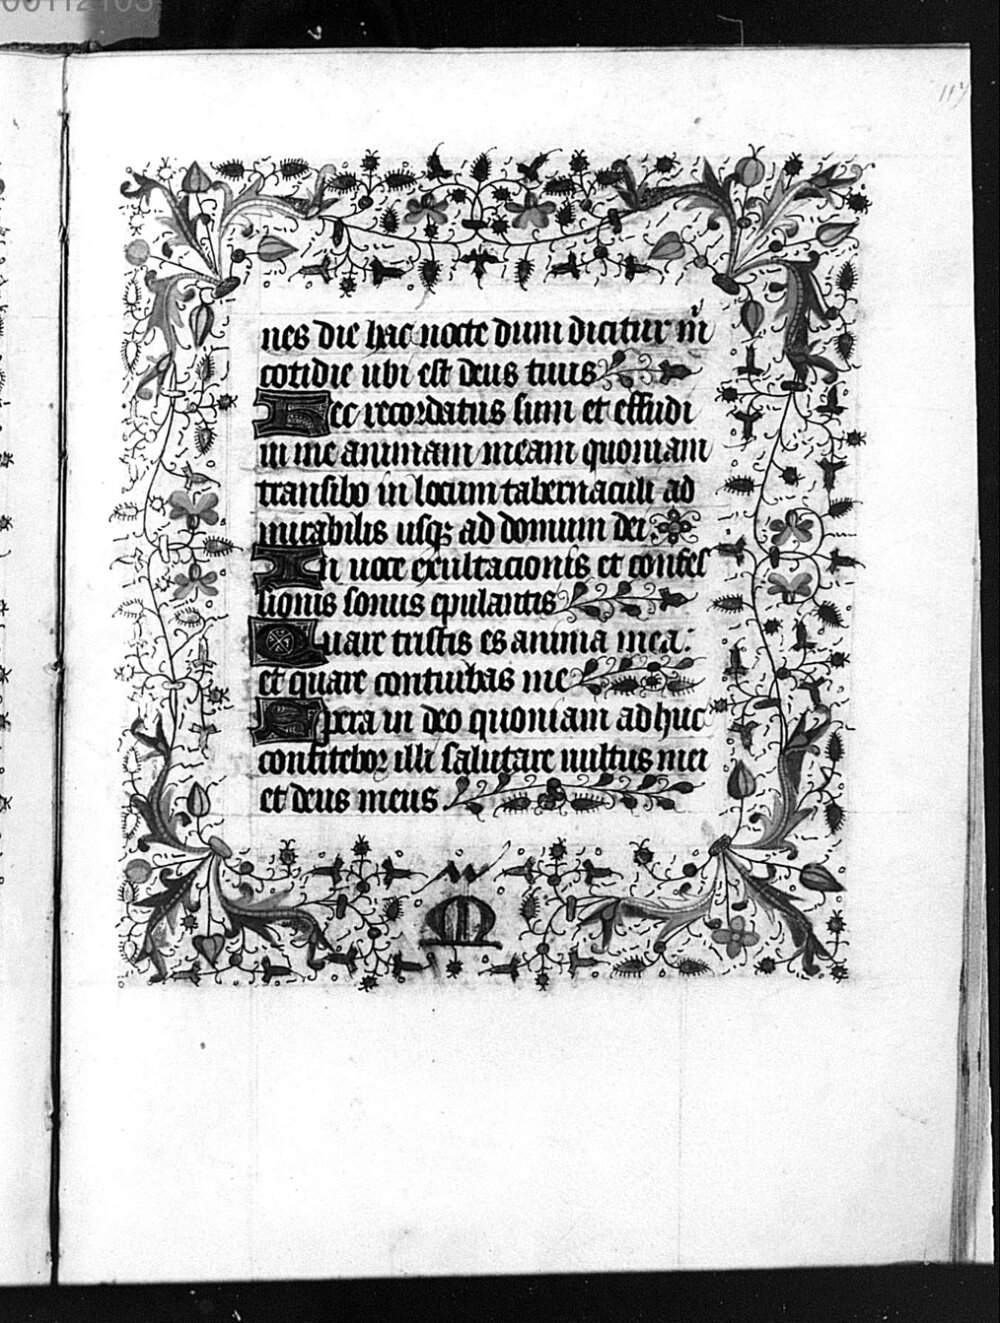 00112103
117
nes die hac nocte dum dicitur m̄
cotidie ubi est deus tuus
Hec recordatus sum et effudi
in me animam meam quoniam
transibo in locum tabernaculi ad
mirabilis usqꝫ ad domum dei
In uoce exultacionis et confes
sionis sonus epulantis
Quare tristis es anima mea:
et quare conturbas me
Spera in deo quoniam adhuc
confitebor illi salutare uultus mei
et deus meus